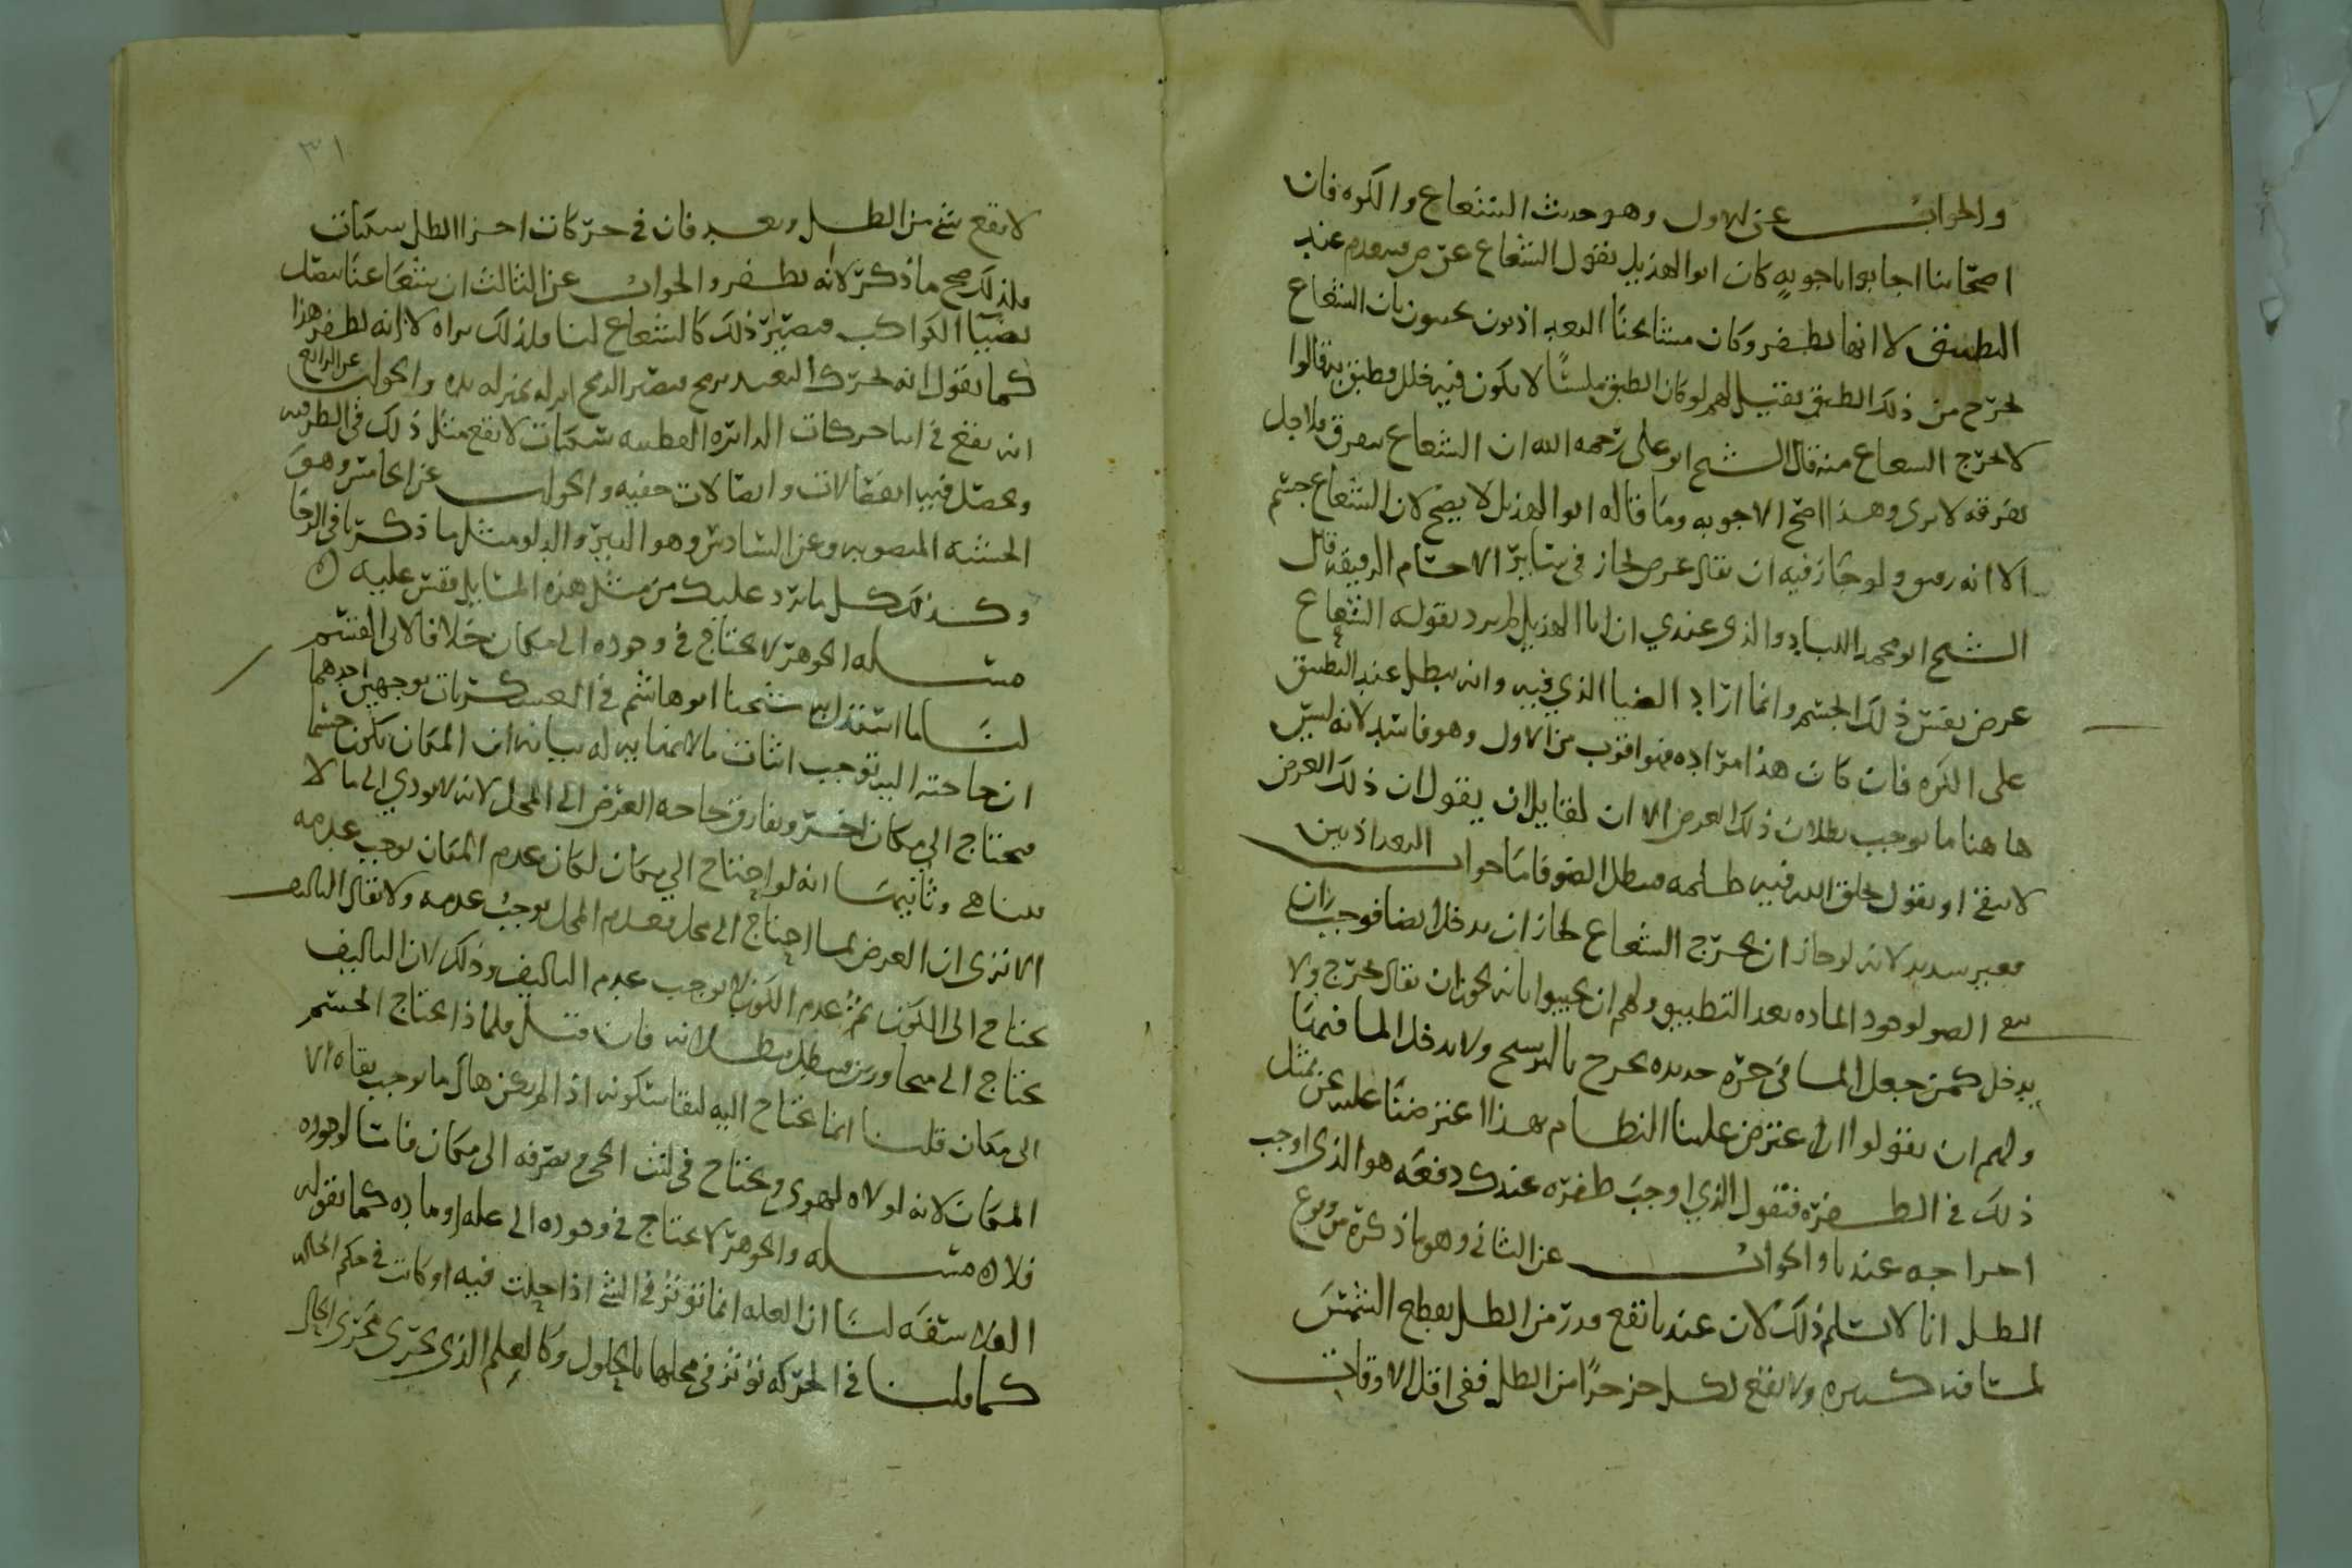 والجواب عن الاول وهو حديث الشعاع والكوه فان
اصحابنا اجابوا باجوبه كان ابو الهذيل يقول الشعاع عرض فيعدم عند
التطبيق لا انها يطفر وكان مشائخنا البغداذيون يجيبون بان الشعاع
يخرج من ذلك الطبق فقيل لهم لو كان الطبق ملسًا لا يكون فيه خلل وطبق به قالوا
لا يخرج الشعاع منه قال الشيخ ابو علي رحمه الله ان الشعاع يتفرق فلاجل
تفرقه لا يرى وهذا اصح الاجوبه وما قاله ابو الهذيل لا يصح لان الشعاع جسم
الا انه رقيق ولو جاز فيه ان يقال عرض لجاز في سائر الاجسام الرقيقه قال
الشيخ ابو محمد اللباد والذي عندي ان ابا الهذيل لم يرد بقوله الشعاع
عرض نفس ذلك الجسم وانما اراد الضيا الذي فيه وانه يبطل عند التطبيق
على الكوه فان كان هذا مراده فهو اقرب من الاول وهو فاسد لانه ليس
ها هنا ما يوجب بطلان ذلك العرض الا ان لقايل ان يقول ان ذلك العرض
لا يبقى او يقول يخلق الله فيه ظلمه فيبطل الضو فاما جواب البغداذيين
فغير سديد لانه لو جاز ان يخرج الشعاع لجاز ان يدخل ايضا فوجب ان
يبقى الضو لوجود الماده بعد التطبيق ولهم ان يجيبوا بانه يجوز ان يقال يخرج ولا
يدخل كمن جعل الما في جره جديده يخرج بالرسح ولا يدخل الما فيها
ولهم ان يقولوا ان اعترض علينا النظام بهذا اعترضنا عليه عن مثل
ذلك في الطفره فنقول الذي اوجب طفره عندك دفعه هو الذي اوجب
اخراجه عندنا والجواب عن الثاني وهو ما ذكره من وقوع
الظل انا لا نسلم ذلك لان عندنا تقع قدر من الظل بقطع الشمس
لمسافه كبيره ولا يقع لكل جز جزًا من الظل ففي اقل الاوقات
٣١
لا يقع شي من الظل وبعد فان في حركات اجزا الظل سكنات
فلذلك صح ما ذكر لانه يطفر والجواب عن الثالث ان شعاعنا يتصل
بضيا الكواكب فيصير ذلك كالشعاع لنا فلذلك نراه لا انه يطفر هذا
كما يقول انه يحرك البعيد برمح فيصير الرمح اذ له بمنزله يده والجواب عن الرابع
انه يقع في اثنا حركات الدائره القطبيه سكنات لا يقع مثل ذلك في الطرفيه
ويحصل فيه انفصالات واتصالات خفيه والجواب عن الخامس وهو
الخشبه المنصوبه وعن السادس وهو البير والدلو مثل ما ذكرنا في الرحا
وكذلك كل ما يرد عليك من مثل هذه المسايل فقس عليه
مسله الجوهر لا يحتاج في وجوده الى مكان خلافا لابي القسم
لنا ما استدل به شيخنا ابو هاشم في العسكريات بوجهين احدهما
ان حاجته اليه توجب اثبات ما لا نهايه له بيانه ان المكان يكون جسما
فيحتاج الى مكان اخر ويفارق حاجه العرض الى المحل لانه لا يودي الى ما لا
يتناهى وثانيها انه لو احتاج الى مكان لكان عدم المكان يوجب عدمه
الا ترى ان العرض لما احتاج الى محل فعدم المحل يوجب عدمه ولا يقال التاليف
يحتاج الى الكون ثم عدم الكون لا يوجب عدم التاليف وذلك لان التاليف
يحتاج الى متجاورين فيبطل ببطلانه فان قيل فلماذا يحتاج الجسم
الى مكان قلنا انما يحتاج اليه لبقا سكونه اذا لم يكن هاك ما يوجب بقاه الا
المكان لانه لولاه لهوى ويحتاج في لبث الحي وتصرفه الى مكان فاما لوجوده
فلا مسله والجوهر لا يحتاج في وجوده الى عله او ماده كما تقوله
الفلاسفه لنا ان العله انما تؤثر في الشي اذا حلت فيه او كانت في حكم الحاله
كما قلنا في الحركه تؤثر في محلها بالحلول وكالعلم الذي يجري مجرى الحال